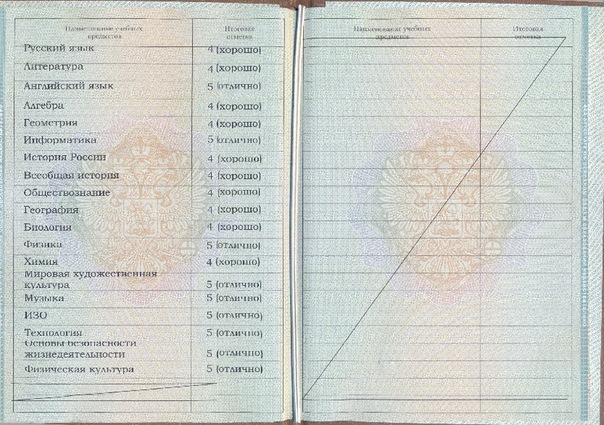 Наименование учебных
предметов
Итоговая
отметка
Русский язык 4 (хорошо)
Литература 4 (хорошо)
Английский язык 5 (отлично)
Алгебра 4 (хорошо)
Геометрия 4 (хорошо)
Информатика 5 (отлично)
История России 4 (хорошо)
Всеобщая история 4 (хорошо)
Обществознание 4 (хорошо)
География 4 (хорошо)
Биология 4 (хорошо)
Физика 5 (отлично)
Химия 4 (хорошо)
Мировая художественная
культура 5 (отлично)
Музыка 5 (отлично)
ИЗО 5 (отлично)
Технология 5 (отлично)
Основы безопасности
жизнедеятельности 5 (отлично)
Физическая культура 5 (отлично)
Наименование учебных
предметов
Итоговая
отметка